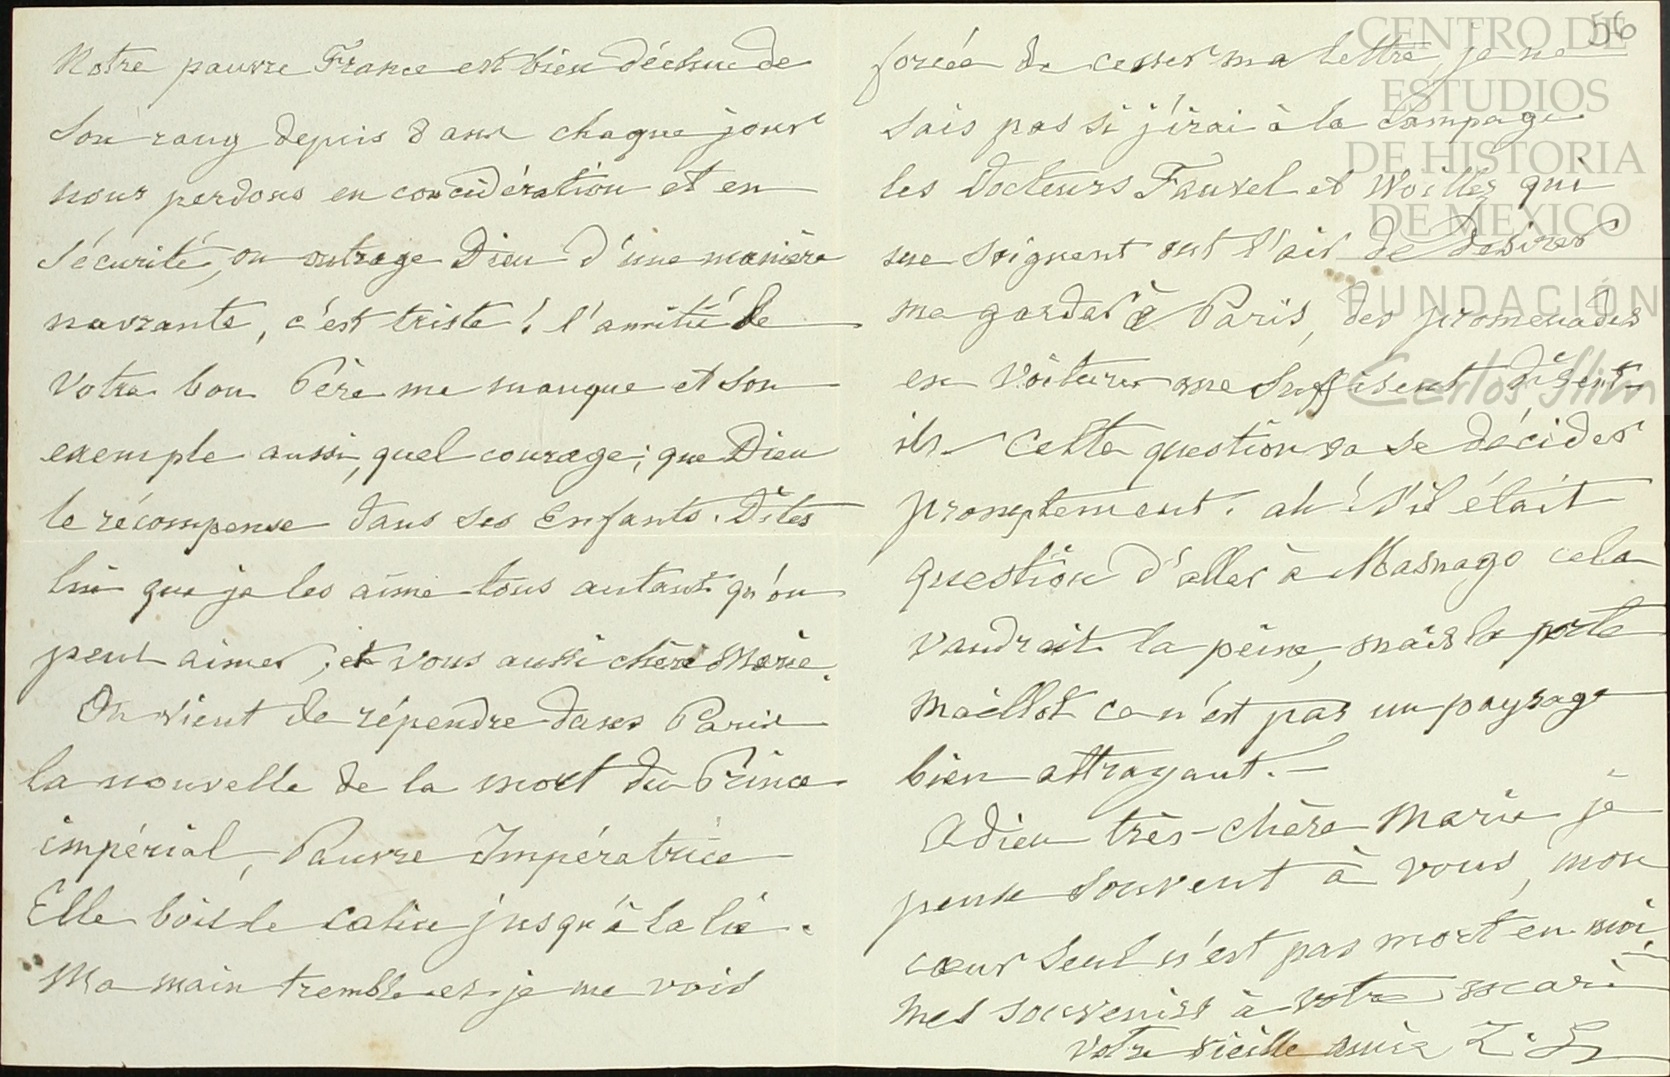 Notre pauvre France est bien déchue de
son rang depuis 8 ans chaque jour
nous perdons en concidération et en
sécurité, on outrage Dieu d'une manière
navrante, c'est triste! l'amitié de
votre bon Père me manque et son
exemple aussi, quel courage; que Dieu
le récompense dans ses Enfants. Dites
lui que je les aime tous autant qu'on
peut aimer, et vous aussi chère Marie.
On vient de répendre dans Paris
la nouvelle de la mort du Prince
impérial, Pauvre Impératrice
Elle bois le calice jusqu'à la lie.
Ma main tremble et je me vois
56
forcée de cesser ma lettre, je ne
sais pas si j'irai à la campage
les Docteurs Fauvel et Woillez qui
me soignent ont l'air de desirer
me garder à Paris, des promenades
en voiture me suffisent disent
ils. Cette question va se décider
promptement. ah! s'il était
question d'aller à Masnago cela
vaudrait la peine, mais la porte
Maillot ce n'est pas un paysage
bien attrayant. -
Adieu très-chère Marie je
pense souvent à vous, mon
cœur seul n'est pas mort en moi
mes souvenirs à votre mari
votre vieille amie
CENTRO DE
ESTUDIOS
DE HISTORIA
DE MEXICO
FUNDACIÓN
Carlos Slim